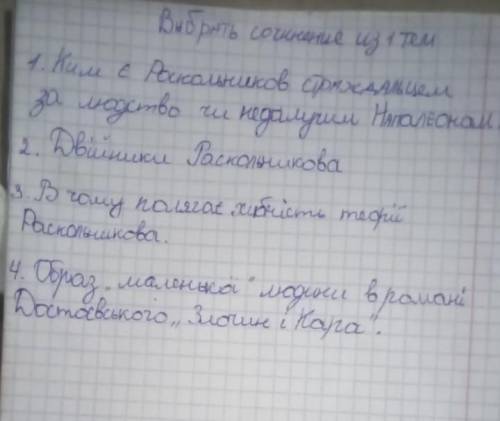 Выбрать сочинение из 1 тем
1. Ким є Раскольников стражданцем
за людство чи недолугим Наполеоном.
2. Двійники Раскольникова
3. В чому полягає хибність теорії
Раскольникова.
4. Образ „маленької" людини в романі
Достоєвського „Злочин і Кара".